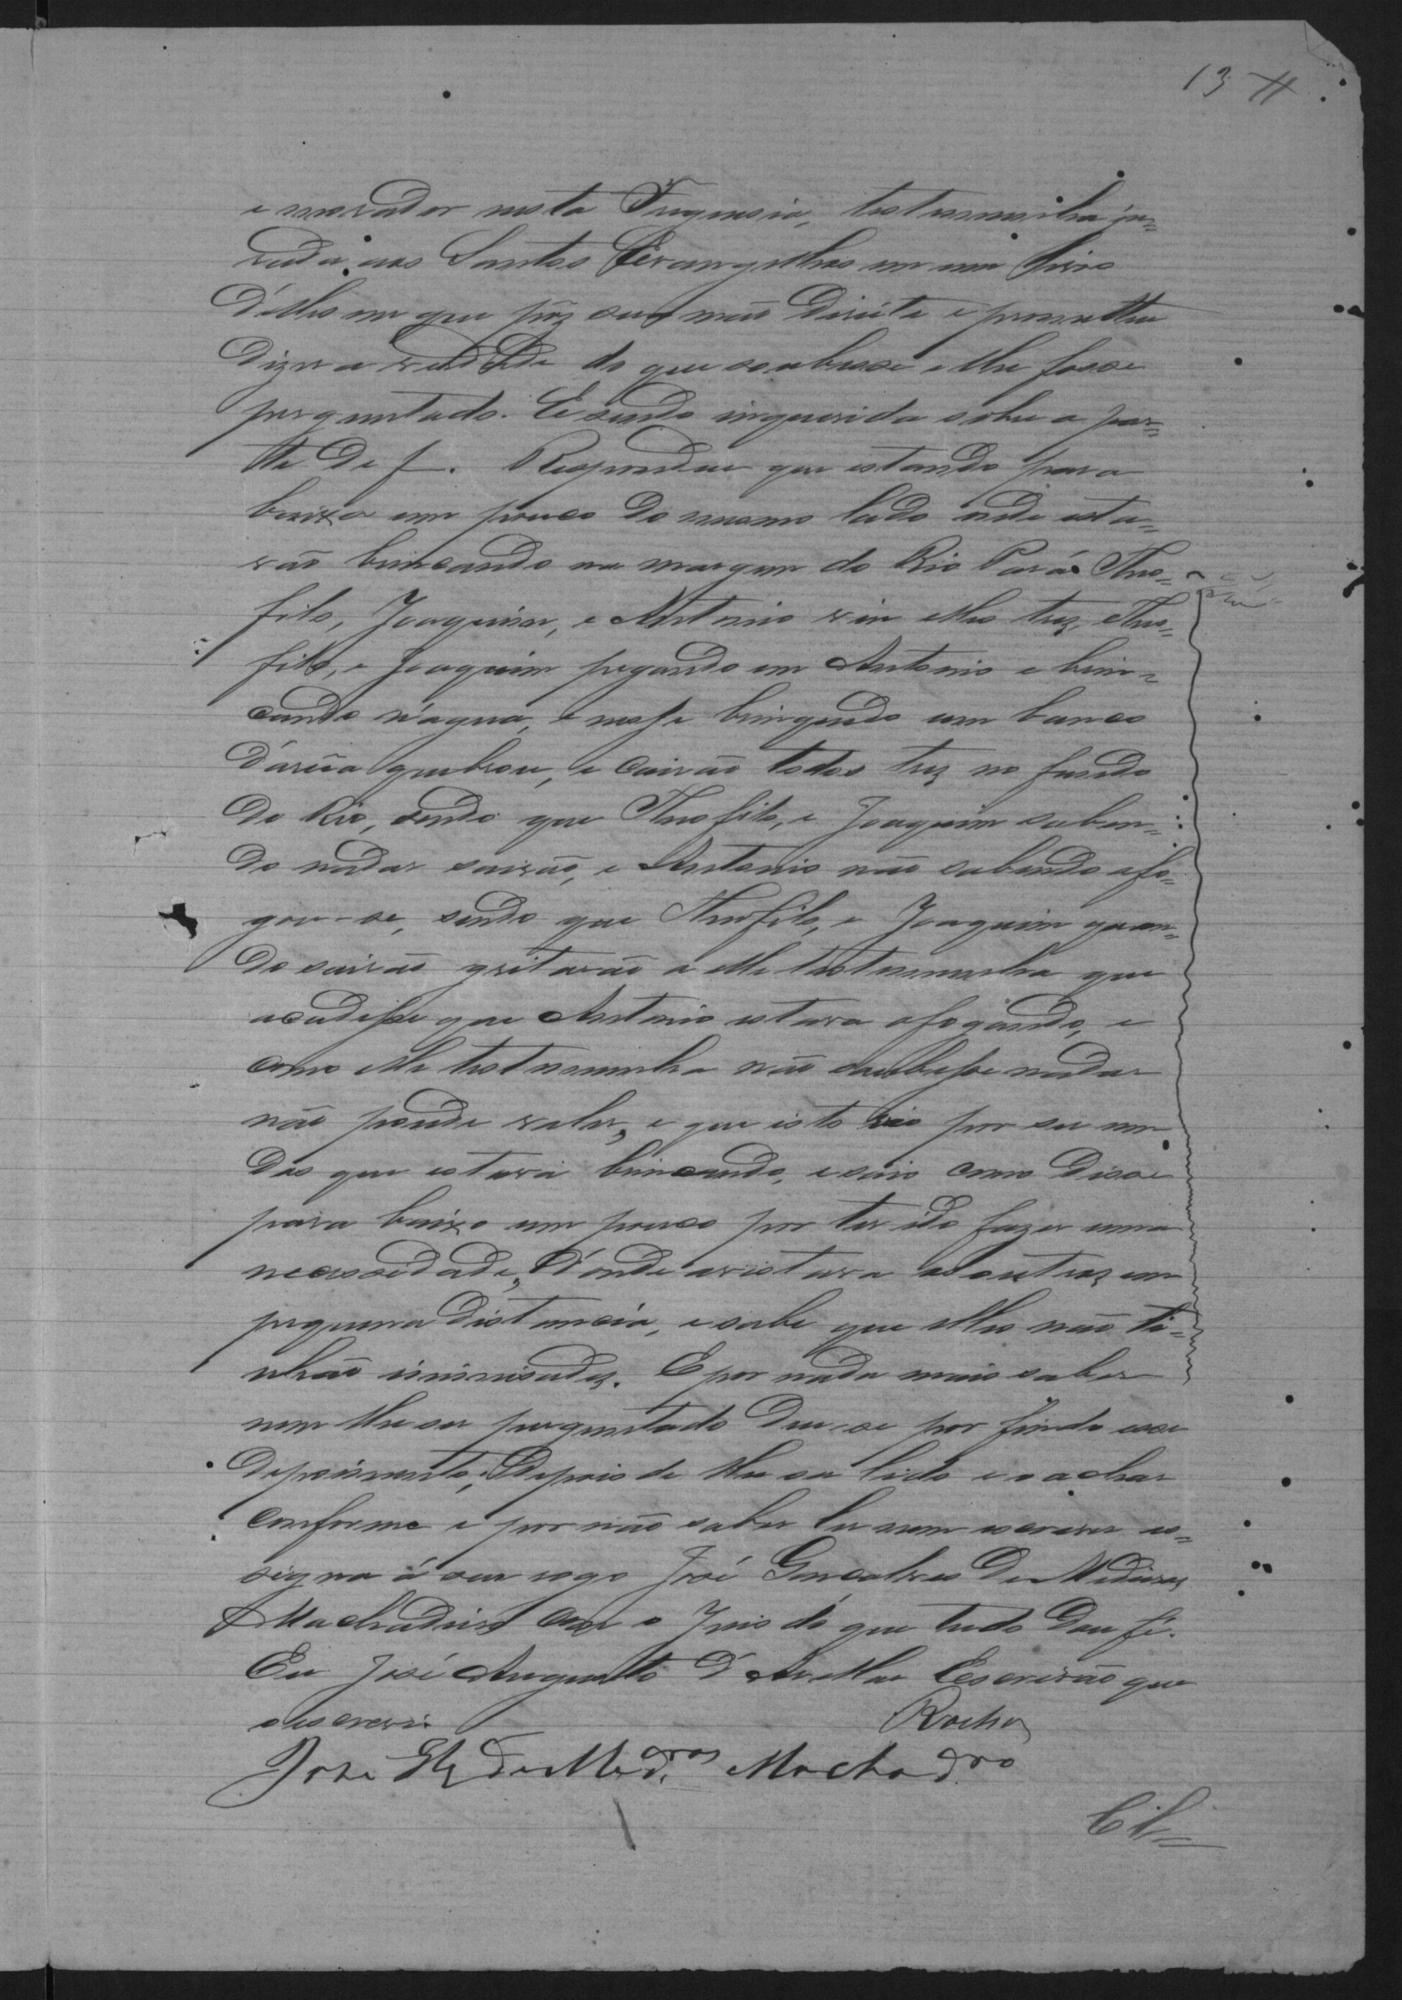 13
e morador nesta Freguesia, testemunha ju=
rada aos Santos Evangelhos em um livro
d'elles em que pôz sua mão direita e prometteu
dizer a verdade do que soubesse e lhe fosse
perguntado. E sendo inquerida sobre a par=
te de f. Respondeu que estando para
baixo um pouco do mesmo lado onde esta=
vão brincando na margem do Rio Pará Theo=
filo, Joaquim, e Antonio vio elles trez, Theo=
filo, e Joaquim pegando em Antonio e brin=
cando n'agua, e nesse brinquedo um banco
d'arêia quebrou, e cairão todos trez no fundo
do Rio, sendo que Theofilo, e Joaquim saben=
do nadar sairão, e Antonio não sabendo afo=
gou-se, sendo que Theofilo, e Joaquim quan=
do sairão gritarão a elle testemunha que
acudisse que Antonio estava afogando, e
como elle testemunha não soubesse nadar
não poude valer, e que isto vio por ser um
dos que estava brincando, e saio como disse
para baixo um pouco por ter ido fazer uma
necessidade, d'onde avistava os outros em
pequena distancia, e sabe que elles não ti=
nhão inimisades. E por nada mais saber
nem lhe ser perguntado deu-se por findo esse
depoimento, Depois de lhe ser lido e o achar
conforme e por não saber ler nem escrever as=
signa á seu rogo José Gonçalves de Medeiros
Machadinho com o Juis do que tudo dou fé.
Eu José Augusto d'Avellar Escrivão que
o escrevi.
Rocha
Jose Glz de Med.ros Machad.ro